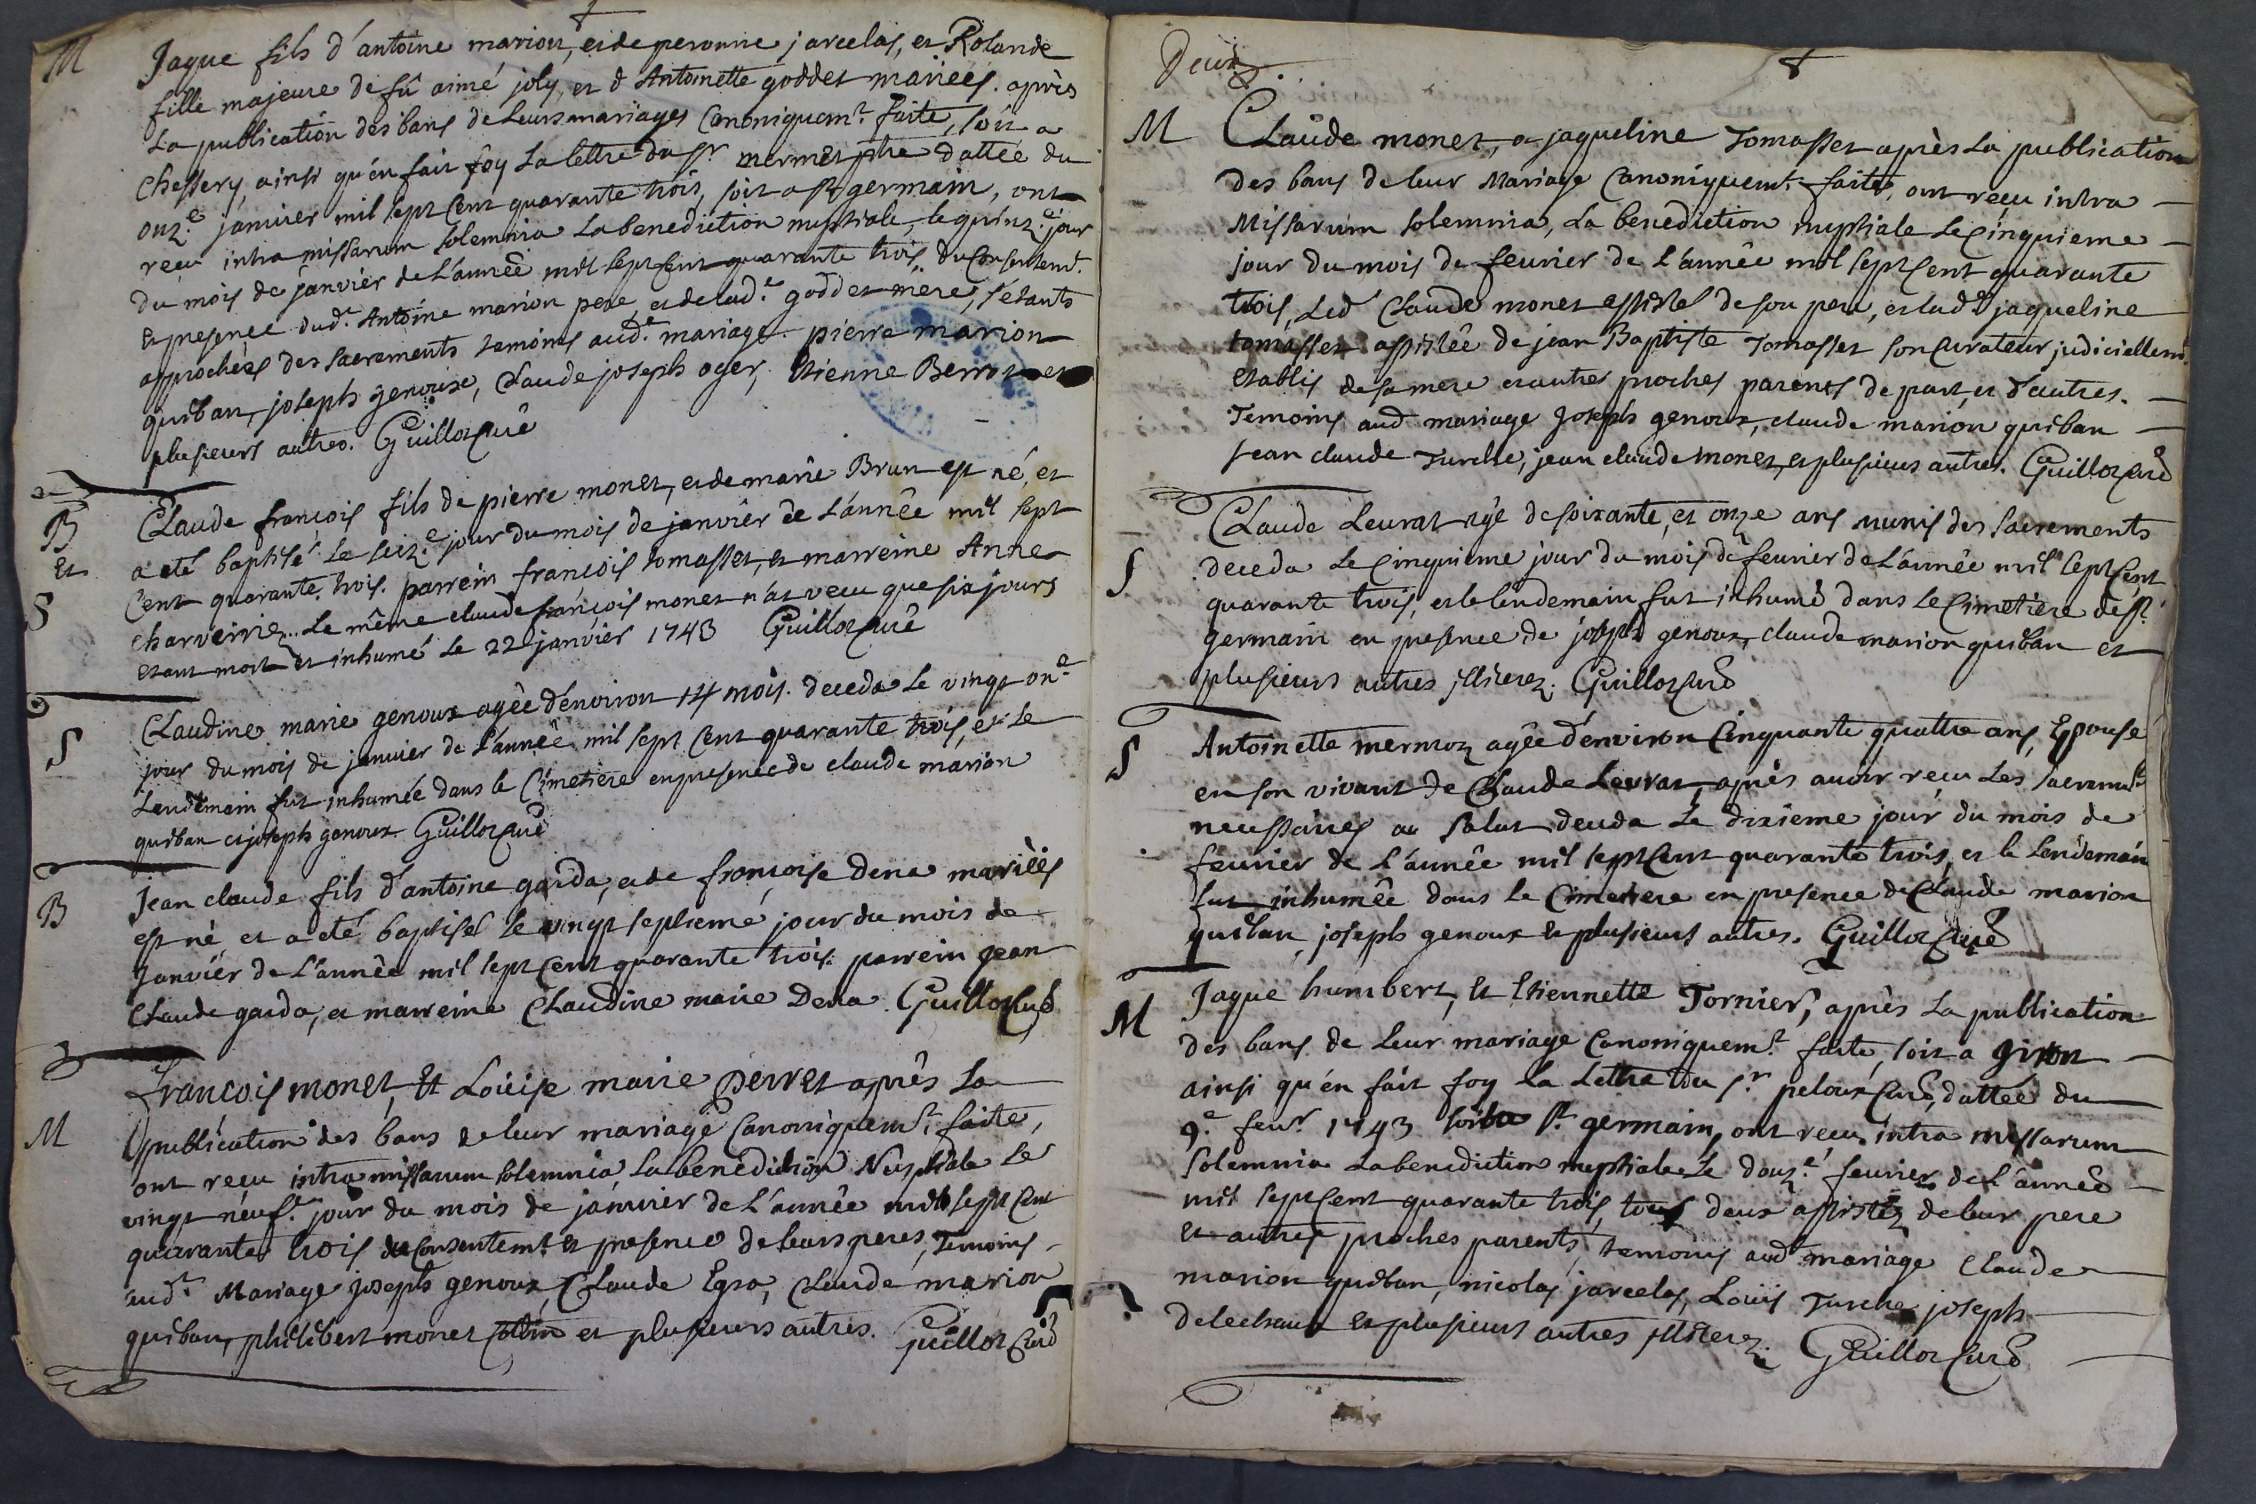 M Jaque fils d'antoine marion, et de peronne jarcelas, et Rolande
fille majeure de fû aimé joly, et d Antoinette goddet mariées. après
la publication des bans de leurs mariages Canoniquemt. faite, soit a
Chessery, ainsi qu'en fait foy la lettre du Sr mermet ptre dattée du
onz.e janvier mil sept Cent quarante trois, soit a St germain, ont
reçu intra missarum solemnia la benediction nuptiale, le quinz.e jour
du mois de janvier de L'année mil sept Cent quarante trois du Consentemt.
et presence dud.t Antoine marion pere, et de lad.e goddet mere, s'etants
approchés des sacrements temoins aud.t mariage pierre marion
quiban, joseph genoux, Claude joseph oger, Etienne Berrot et
plusieurs autres. Guillot Curé
B Claude françois fils de pierre monet, et de marie Brun est né, et
et a eté baptisé le seiz.e jour du mois de janvier de L'année mil sept
S Cent quarante trois. parrein françois tomasset, et marreine Anne
charveirie. Le même claude françois monet n'at vecu que six jours
etant mort et inhumé le 22 janvier 1743 Guillot Curé
S Claudine marie genoux agée d'environ 14 mois. deceda le vingt on.e
jour du mois de janvier de L'année mil sept Cent quarante trois, et le
Lendemain fut inhumée dans le Cimetiere en presence de claude marion
quiban et joseph genoux. Guillot Curé
B Jean claude fils d'antoine gaida, et de françoise dena mariées
est né, et a eté baptisé le vingt septieme jour du mois de
Janvier de L'année mil sept Cent quarante trois. parrein jean
Claude gaida, et marreine Claudine marie Dena. Guillot Curé
M François monet, Et Loüise marie perret après la
publication des bans de leur mariage Canoniquemt. faite,
ont reçu intra missarum solemnia, la benediction Nuptiale le
vingt neuf.e jour du mois de janvier de L'année mil sept Cent
quarante trois du Consentemt. et presence de leurs peres, Temoins
aud.t Mariage joseph genoux, Claude Egra, Claude marion
quiban, philibert monet et plusieurs autres. Guillot Curé
Deux
M Claude monet, et jaqueline Tomasset après la publication
des bans de leur Mariage Canoniquemt. faite, ont reçu intra
Missarum solemnia, la benediction nuptiale le Cinquieme
jour du mois de fevrier de L'année mil sept Cent quarante
trois, Led Claude monet assisté de son pere, et lad jaqueline
tomasset assistée de jean Baptiste Tomasset son Curateur judiciellemt.
etablis de sa mere et autres proches parents de part, et d'autres.
Temoins aud mariage Joseph genoux, claude marion quiban
jean claude Turche, jean claude monet, et plusieurs autres. Guillot Curé
S Claude Levrat agé de soixante, et onze ans munis des sacrements
deceda le Cinquieme jour du mois de fevrier de L'année mil sept Cent
quarante trois, et le lendemain fut inhumé dans le Cimetiere de St.
germain en presence de joseph genoux, claude marion quiban et
plusieurs autres illiterez. Guillot Curé
S Antoinette mermoz agée d'environ Cinquante quattre ans, Epouse
en son vivant de Claude Levrat, après avoir reçu les sacremts
necessaires au Salut, deceda le dixieme jour du mois de
fevrier de L'année mil sept Cent quarante trois, et le lendemain
fut inhumée dans le Cimetiere en presence de Claude marion
quiban, joseph genoux et plusieurs autres. Guillot Curé
M Jaque humbert, Et Etiennette Tornier, après la publication
des bans de leur mariage Canoniquemt. faite, soit a giron
ainsi qu'en fait foy la Lettre du Sr peloux Curé, dattée du
9.e fevr. 1743 soit a St. germain, ont reçu intra missarum
solemnia la benediction nuptiale le douz.e fevrier de L'année
mil sept Cent quarante trois, tous deux assistéz de leur pere
et autres proches parents, temoins aud mariage Claude
marion quiban, nicolas jarcelas, Loüis Turche joseph
delechaux et plusieurs autres illiterez. Guillot Curé